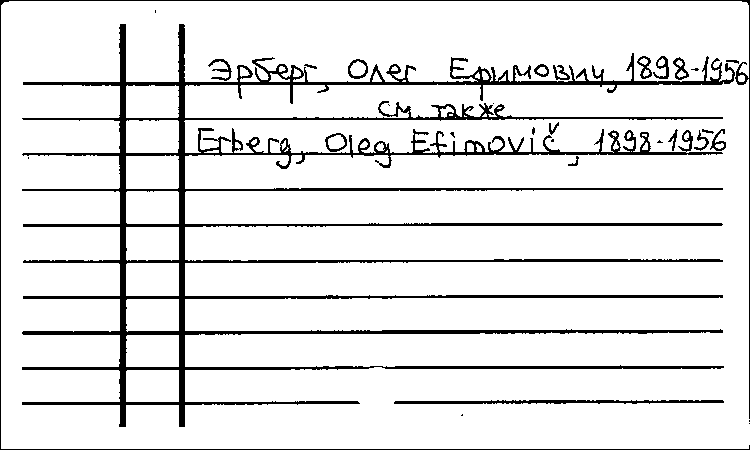 Эрберг, Олег Ефимович, 1898-1956
см. также
Erberg, Oleg Efimovič, 1898-1956